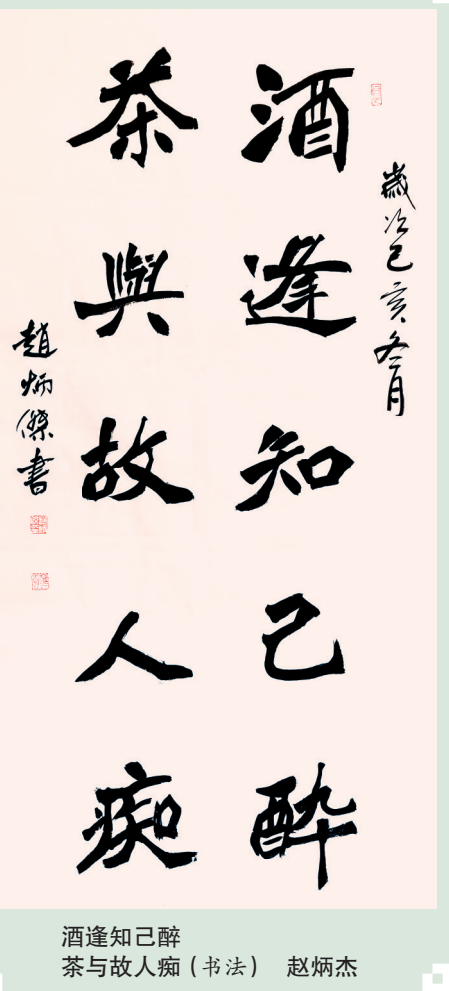 歲次己亥冬月
酒逢知己醉
茶與故人痴
趙炳傑書
酒逢知己醉
茶与故人痴（书法） 赵炳杰